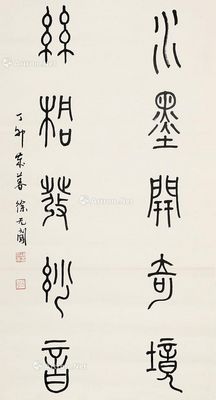 水墨開奇境
絲桐發妙音
丁卯歲暮徐无聞